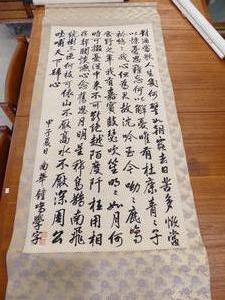 對酒當歌人生幾何譬如朝露去日苦多慨當
以慷憂思難忘何以解憂唯有杜康青青子
衿悠悠我心但爲君故沈吟至今呦呦鹿鳴
食野之苹我有嘉賓鼓瑟吹笙明明如月何
時可掇憂從中來不可斷絕越陌度阡枉用相
存契闊談讌心念舊恩月明星稀烏鵲南飛
繞樹三匝何枝可依山不厭高水不厭深周公
吐哺天下歸心
甲子夏日